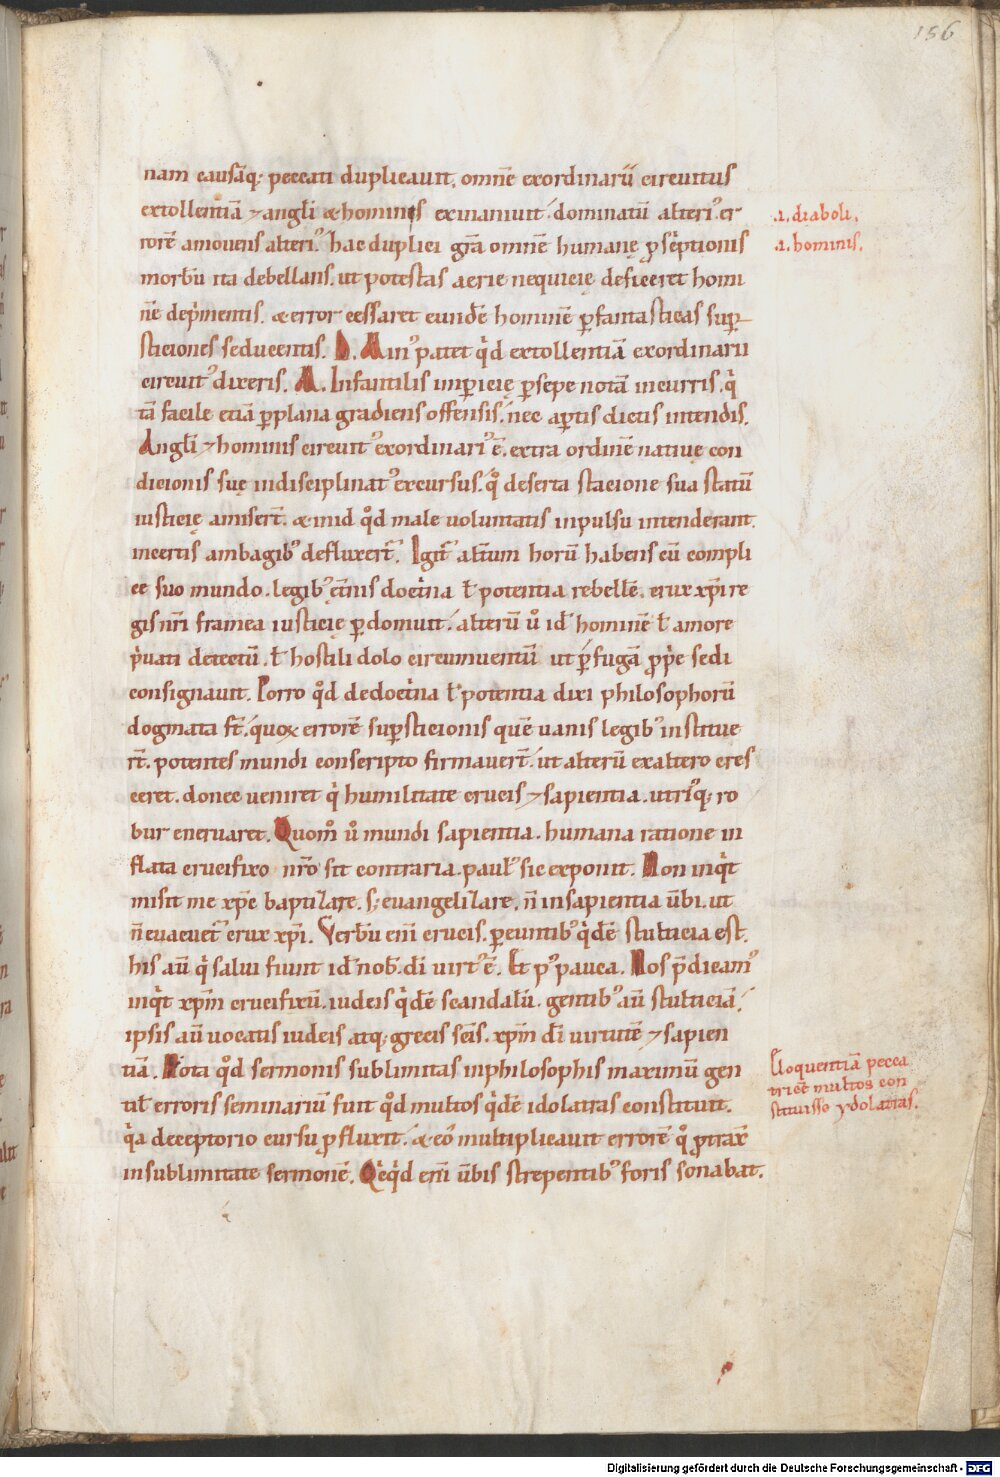 156
nam causāq; peccati duplicauit. omnē exordinarū circuitus
extollentiā ⁊ angłi & hominis exinaniuit. dominatū alteriꝰ er
rorē amouens alteriꝰ. hac duplici grā omnē humanę
morbū ita debellans. ut potestas aerie nequicię deficeret homi
nē dep͛mentis. & error cessaret eundē hominē ꝑfantasticas suꝑ
sticiones seducentis. D. Ain patet qd extollentiā exordinarii
circuitꝰ dixeris. A. Infantilis inꝑicię ꝑsepe notā incurris. q
tā facile etiā ꝑplana gradiens offensis. nec aꝑtis dictis intendis.
Angłi ⁊ hominis circuitꝰ exordinariꝰ ē. extra ordinē natiuę con
dicionis suę indisciplinatꝰ excursus. qͦ deserta stacione sua statū
iusticię amisert̄. & in id qd male uoluntatis inpulsu intenderant
incertis ambagibꝰ defluxert̄. Igit͛ alt̄rum horū habens eū compli
ce suo mundo. legibꝰ doct͛na ł potentia rebellē. crux xp̄i re
gis nr̄i framea iusticię ꝑdomuit. alterū u͛ id hominē ł amore
p͛uati ł hostili dolo circumuentū ut ꝑfugā ꝓp͛e sedi
consignauit. Porro qd dedoct͛na ł potentia dixi philosophorū
dogmata st̄. quoꝝ errorē suꝑsticionis quē uanis legibꝰ institue
rt̄. potentes mundi conscripto firmauert̄. ut alterū exaltero cres
ceret. donec ueniret q͛ humilitate crucis ⁊ sapientia. utriꝰq; ro
bur eneruaret. Quom̊ u͛ mundi sapientia. humana ratione in
flata crucifixo nr̄o sit contraria. paulꝰ sic exponit. Non inqt
misit me xp̄c baptizare. s; euangelizare. n̄ insapientia ūbi. ut
n̄ euacuet͛ crux xp̄i. Verbū eni crucis. ꝑeuntibꝰ qdē stulticia est.
his aū q͛ salui fiunt id nob̄. di uirtꝰ ē. Et pꝰ pauca. Nos p̄dicamꝰ
inqt xp̄m crucifixū. iudeis qdē scandalū. gentibꝰ aū stulticiā.
ipsis aū uocatis iudeis atq; grecis xp̄m di uirtutē ⁊ sapien
tiā. Nota qd sermonis sublimitas inphilosophis maximū gen
til erroris seminariū fuit qd multos qdē idolatras constituit.
q͛a deceptorio cursu ꝓfluxit. & eo multiplicauit errorē qͦ
insublimitate sermonē. Qcqd eni ūbis strepentibꝰ foris sonabat.
.i. diaboli.
.i. hominis.
Eloquentiā pecca
tricē multos con
stituisse ydolatras.
Digitalisierung gefördert durch die Deutsche Forschungsgemeinschaft - DFG